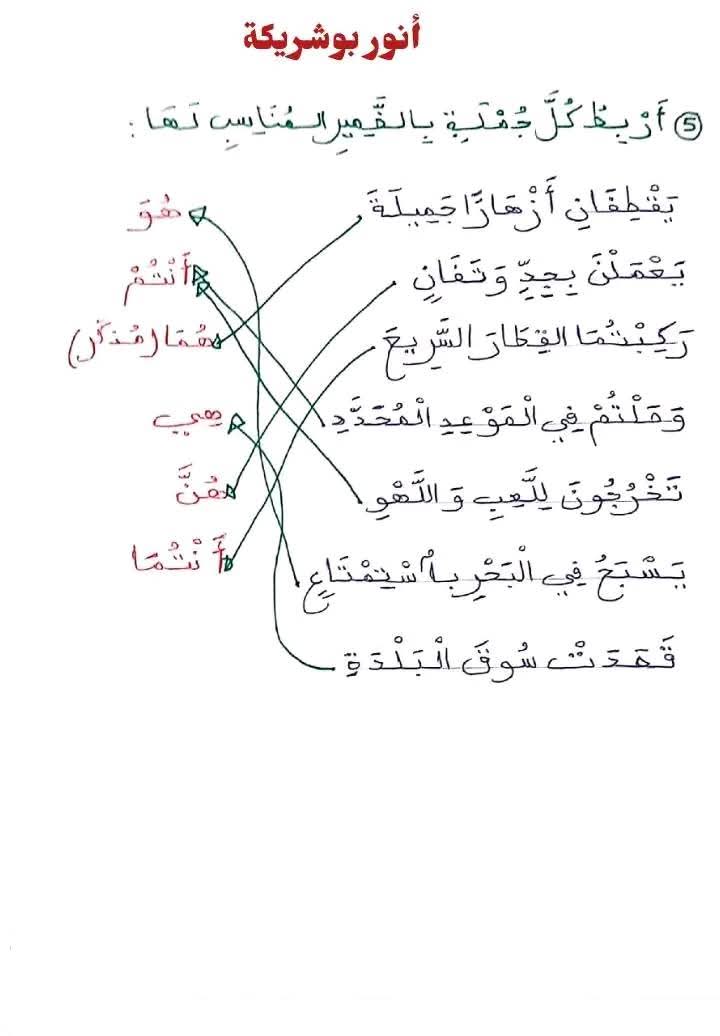 أنور بوشريكة
5 أَرْبِطُ كُلَّ جُمْلَةٍ بِالضَّمِيرِ المُنَاسِبِ لَهَا :
يَقْطِفَانِ أَزْهَارًا جَمِيلَةً هُوَ
يَعْمَلْنَ بِجِدٍّ وَتَفَانٍ أَنْتُمْ
رَكِبْتُمَا القِطَارَ السَّرِيعَ هُمَا (مُذكر)
وَصَلْتُمْ فِي الْمَوْعِدِ الْمُحَدَّدِ هِيَ
تَخْرُجُونَ لِلَّعِبِ وَ اللَّهْوِ هُنَّ
يَسْبَحُ فِي الْبَحْرِ بِاسْتِمْتَاعٍ أَنْتُمَا
قَصَدَتْ سُوقَ الْبَلْدَةِ